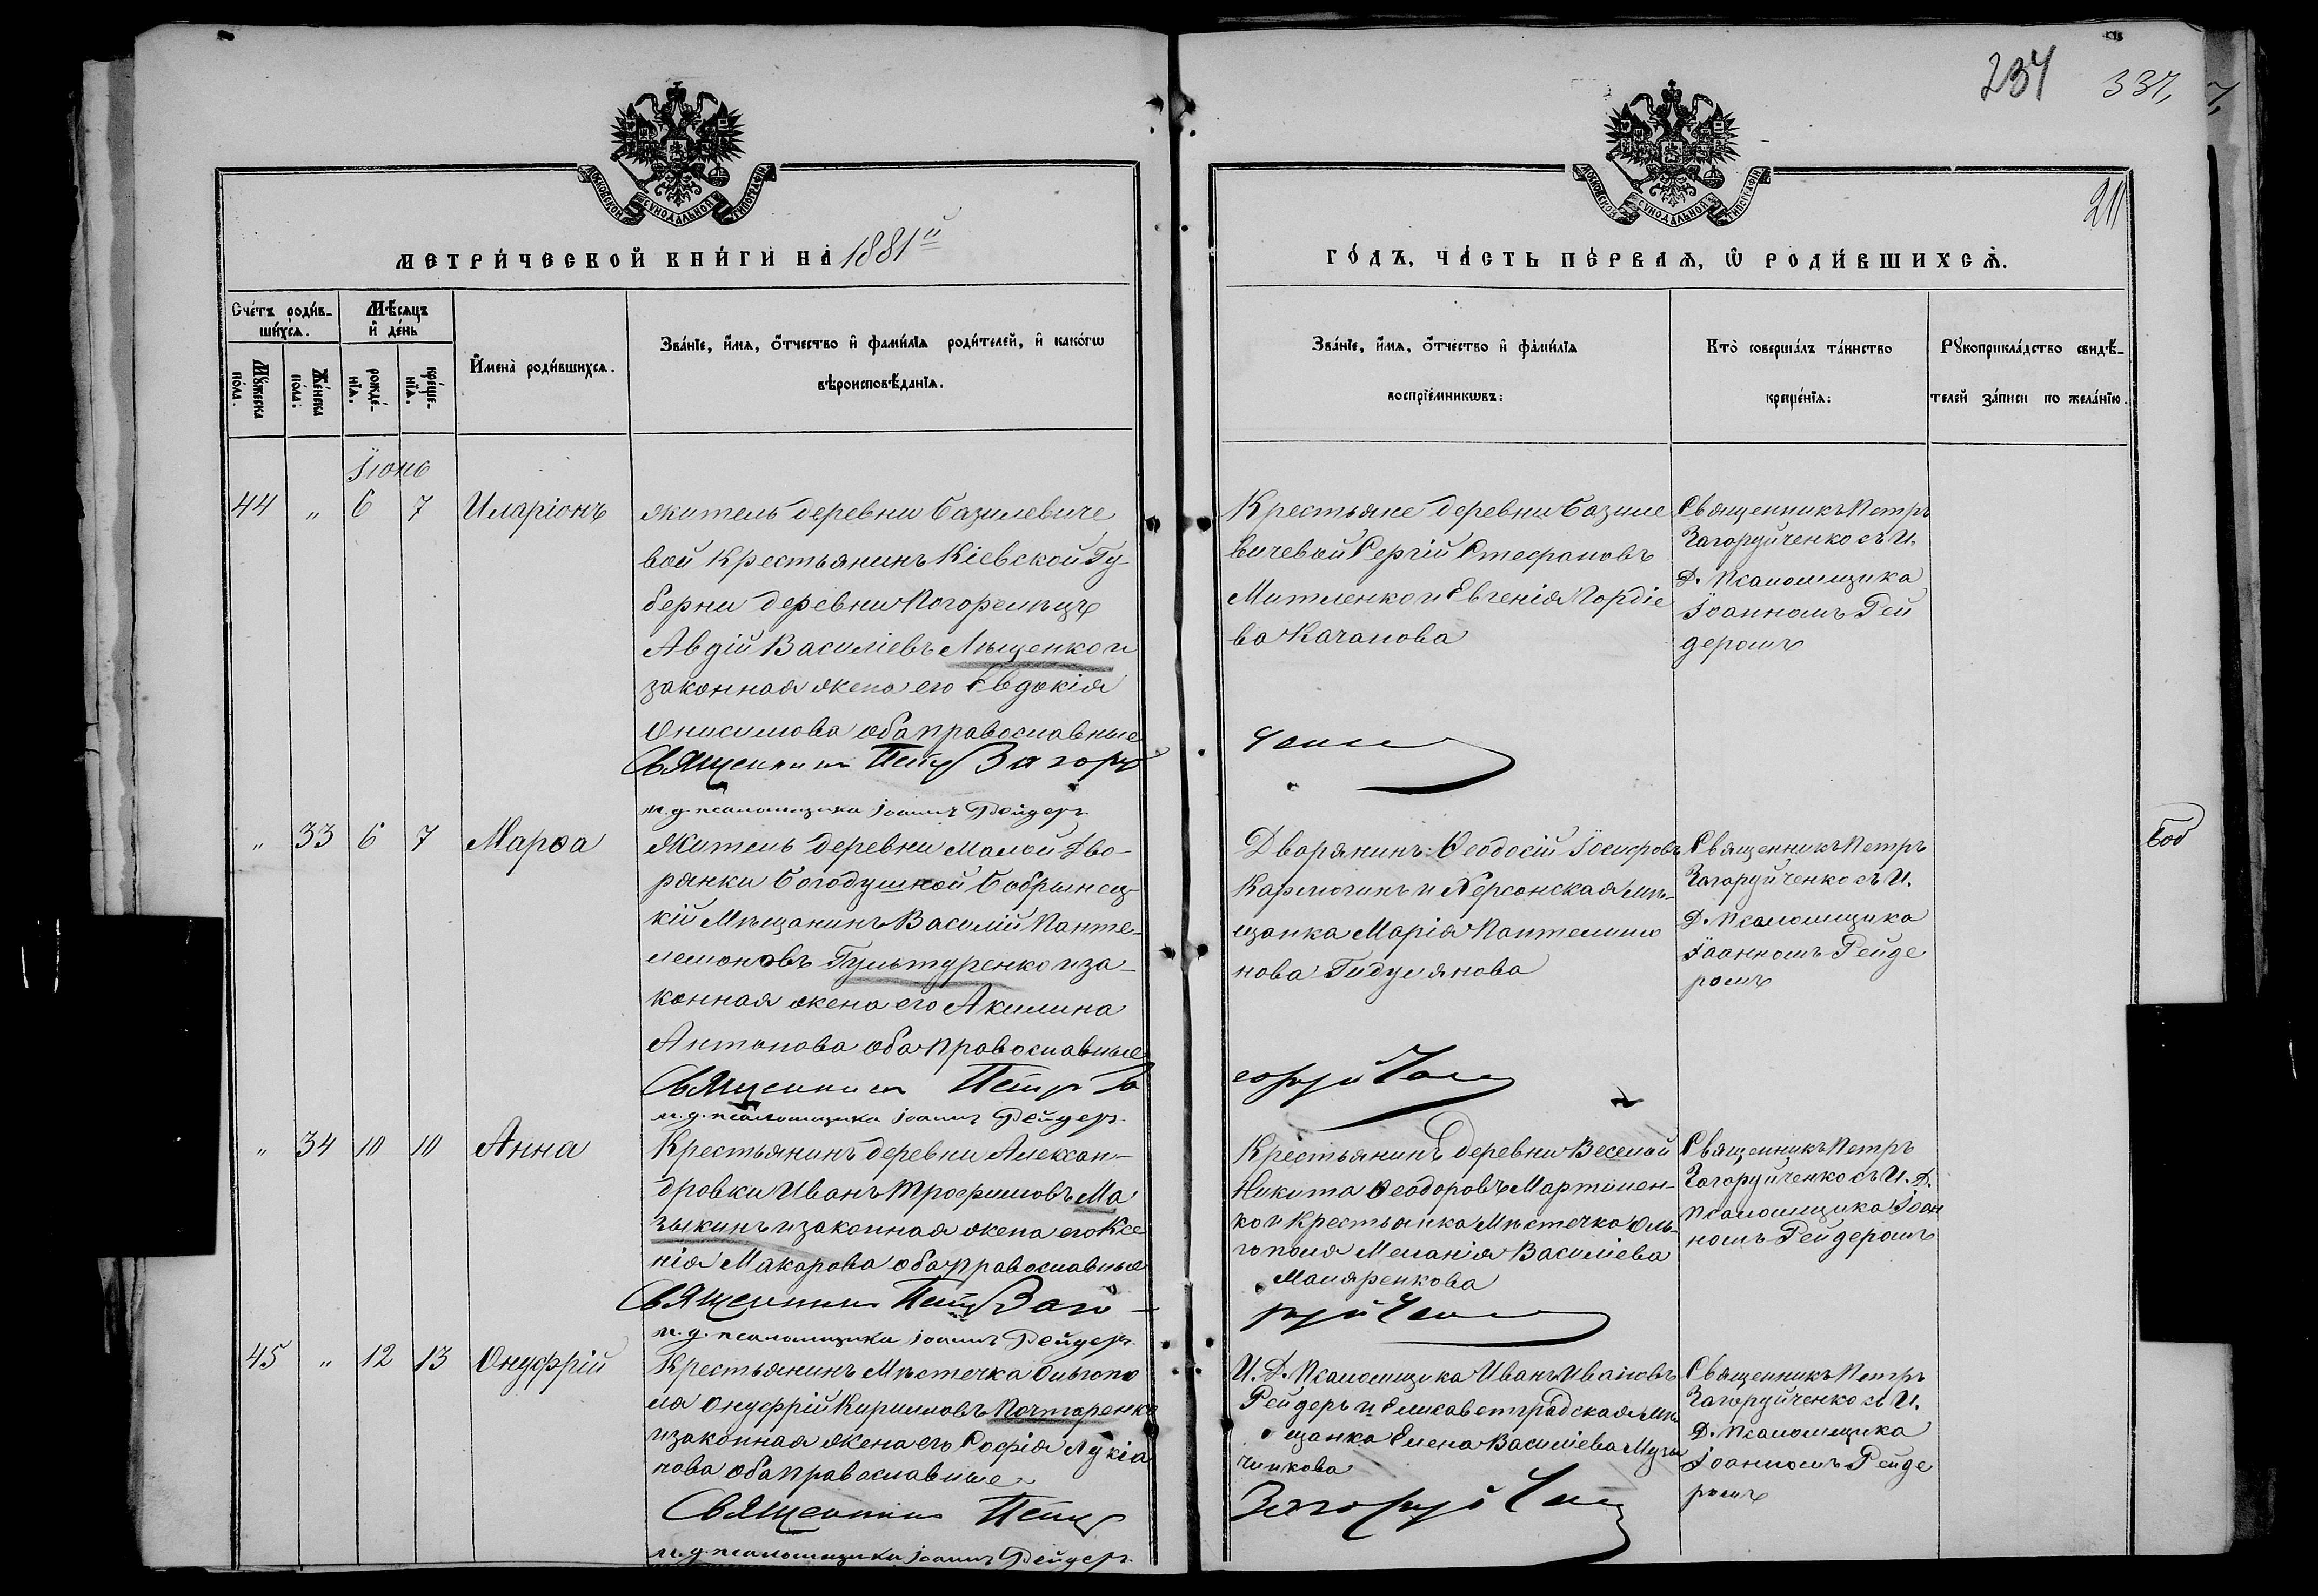 234 337,
211
МОСКОВСКОЙ СѴНОДАЛЬНОЙ ТИПОГРАФІИ
МОСКОВСКОЙ СѴНОДАЛЬНОЙ ТИПОГРАФІИ
МЕТРИ́ЧЕСКОЙ КНИ́ГИ НА 1881й
ГО́ДЪ, ЧА́СТЬ ПЕ́РВАѦ, Ѡ РОДИ́ВШИХСѦ.
Сче́тъ роди́в-
ши́хсѧ.
Мѣ́сѧцъ
и҆ де́нь
Мꙋ́жеска
по́ла.
Же́нска
по́ла.
рожде́-
нїѧ.
креще́-
нїѧ.
И҆мена̀ роди́вшихсѧ.
Зва́нїе, и҆́мѧ, ѻ҆́тчество и҆ фами́лїѧ роди́телей, и҆ како́гѡ
вѣроисповѣ́данїѧ.
Зва́нїе, и҆́мѧ, ѻ҆́тчество и҆ фами́лїѧ
воспрїе́мникѡвъ:
Кто̀ соверша́лъ та́инство
креще́нїѧ:
Рꙋкоприкла́дство свидѣ́-
телей за́писи по жела́нїю.
Іюнь
44 " 6 7 Иларіонъ
житель деревни Базилевиче
вой Крестьянинъ Кіевской Гу
берни деревни Погорельцъ
Авдій Василіевъ Лещенко и
законная жена его Евдокія
Онисимова оба православные
Священникъ Петръ Загору
и.д. псаломщика Іоаннъ Рейдеръ
Крестьяне деревни Базиле
вичевой Сергій Стефановъ
Митленко и Евгенія Гордіе
ва Качанова
Священникъ Петръ
Загоруйченко съ И.
Д. Псаломщика
Іоанномъ Рей
деромъ
" 33 6 7 Марѳа
Житель деревни Малой Дво-
рянки Богодушной Бобрынец-
кій Мѣщанинъ Василій Панте-
лемоновъ Гультуренко и за-
конная жена его Акилина
Антонова оба православные
Священникъ Петръ За
и.д. псаломщика Іоаннъ Рейдеръ
Дворянинъ Ѳеодосій Іосифовъ
Кармогинъ и Херсонская мѣ-
щанка Марія Пантелимо
нова Гидулянова
горуйченко
Священникъ Петръ
Загоруйченко съ И.
Д. Псаломщика
Іоанномъ Рейде
ромъ
" 34 10 10 Анна
Крестьянинъ деревни Алексан-
дровки Иванъ Трофимовъ Ма
зыкинъ и законная жена его Ксе
нія Макарова оба православные
Священникъ Петръ Заго-
и.д. псаломщика Іоаннъ Рейдеръ
Крестьянинъ деревни Веселой
Никита Ѳеодоровъ Мартинен-
ко и Крестьянка Мѣстечка Оль-
гополя Меланія Василіева
Маляренкова
руйченко
Священникъ Петръ
Загоруйченко съ И. Д.
Псаломщика Іоан
номъ Рейдеромъ
45 " 12 13 Онуфрій
Крестьянинъ Мѣстечка Ольгопо
ля Онуфрій Кирилловъ Почтаренко
и законная жена его Софія Лукіа
нова оба православные
Священникъ Петръ
и.д. псаломщика Іоаннъ Рейдеръ
И. Д. Псаломщика Иванъ Ивановъ
Рейдеръ и Елисаветградская мѣ
щанка Елена Василіева Музы
чинкова
Загоруйченко
Священникъ Петръ
Загоруйченко съ И.
Д. Псаломщика
Іоанномъ Рейде
ромъ